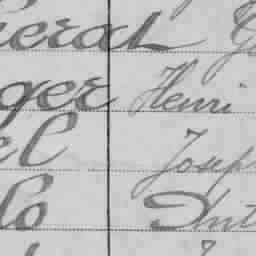 erat
ger Henri
el Josep
lo Ant